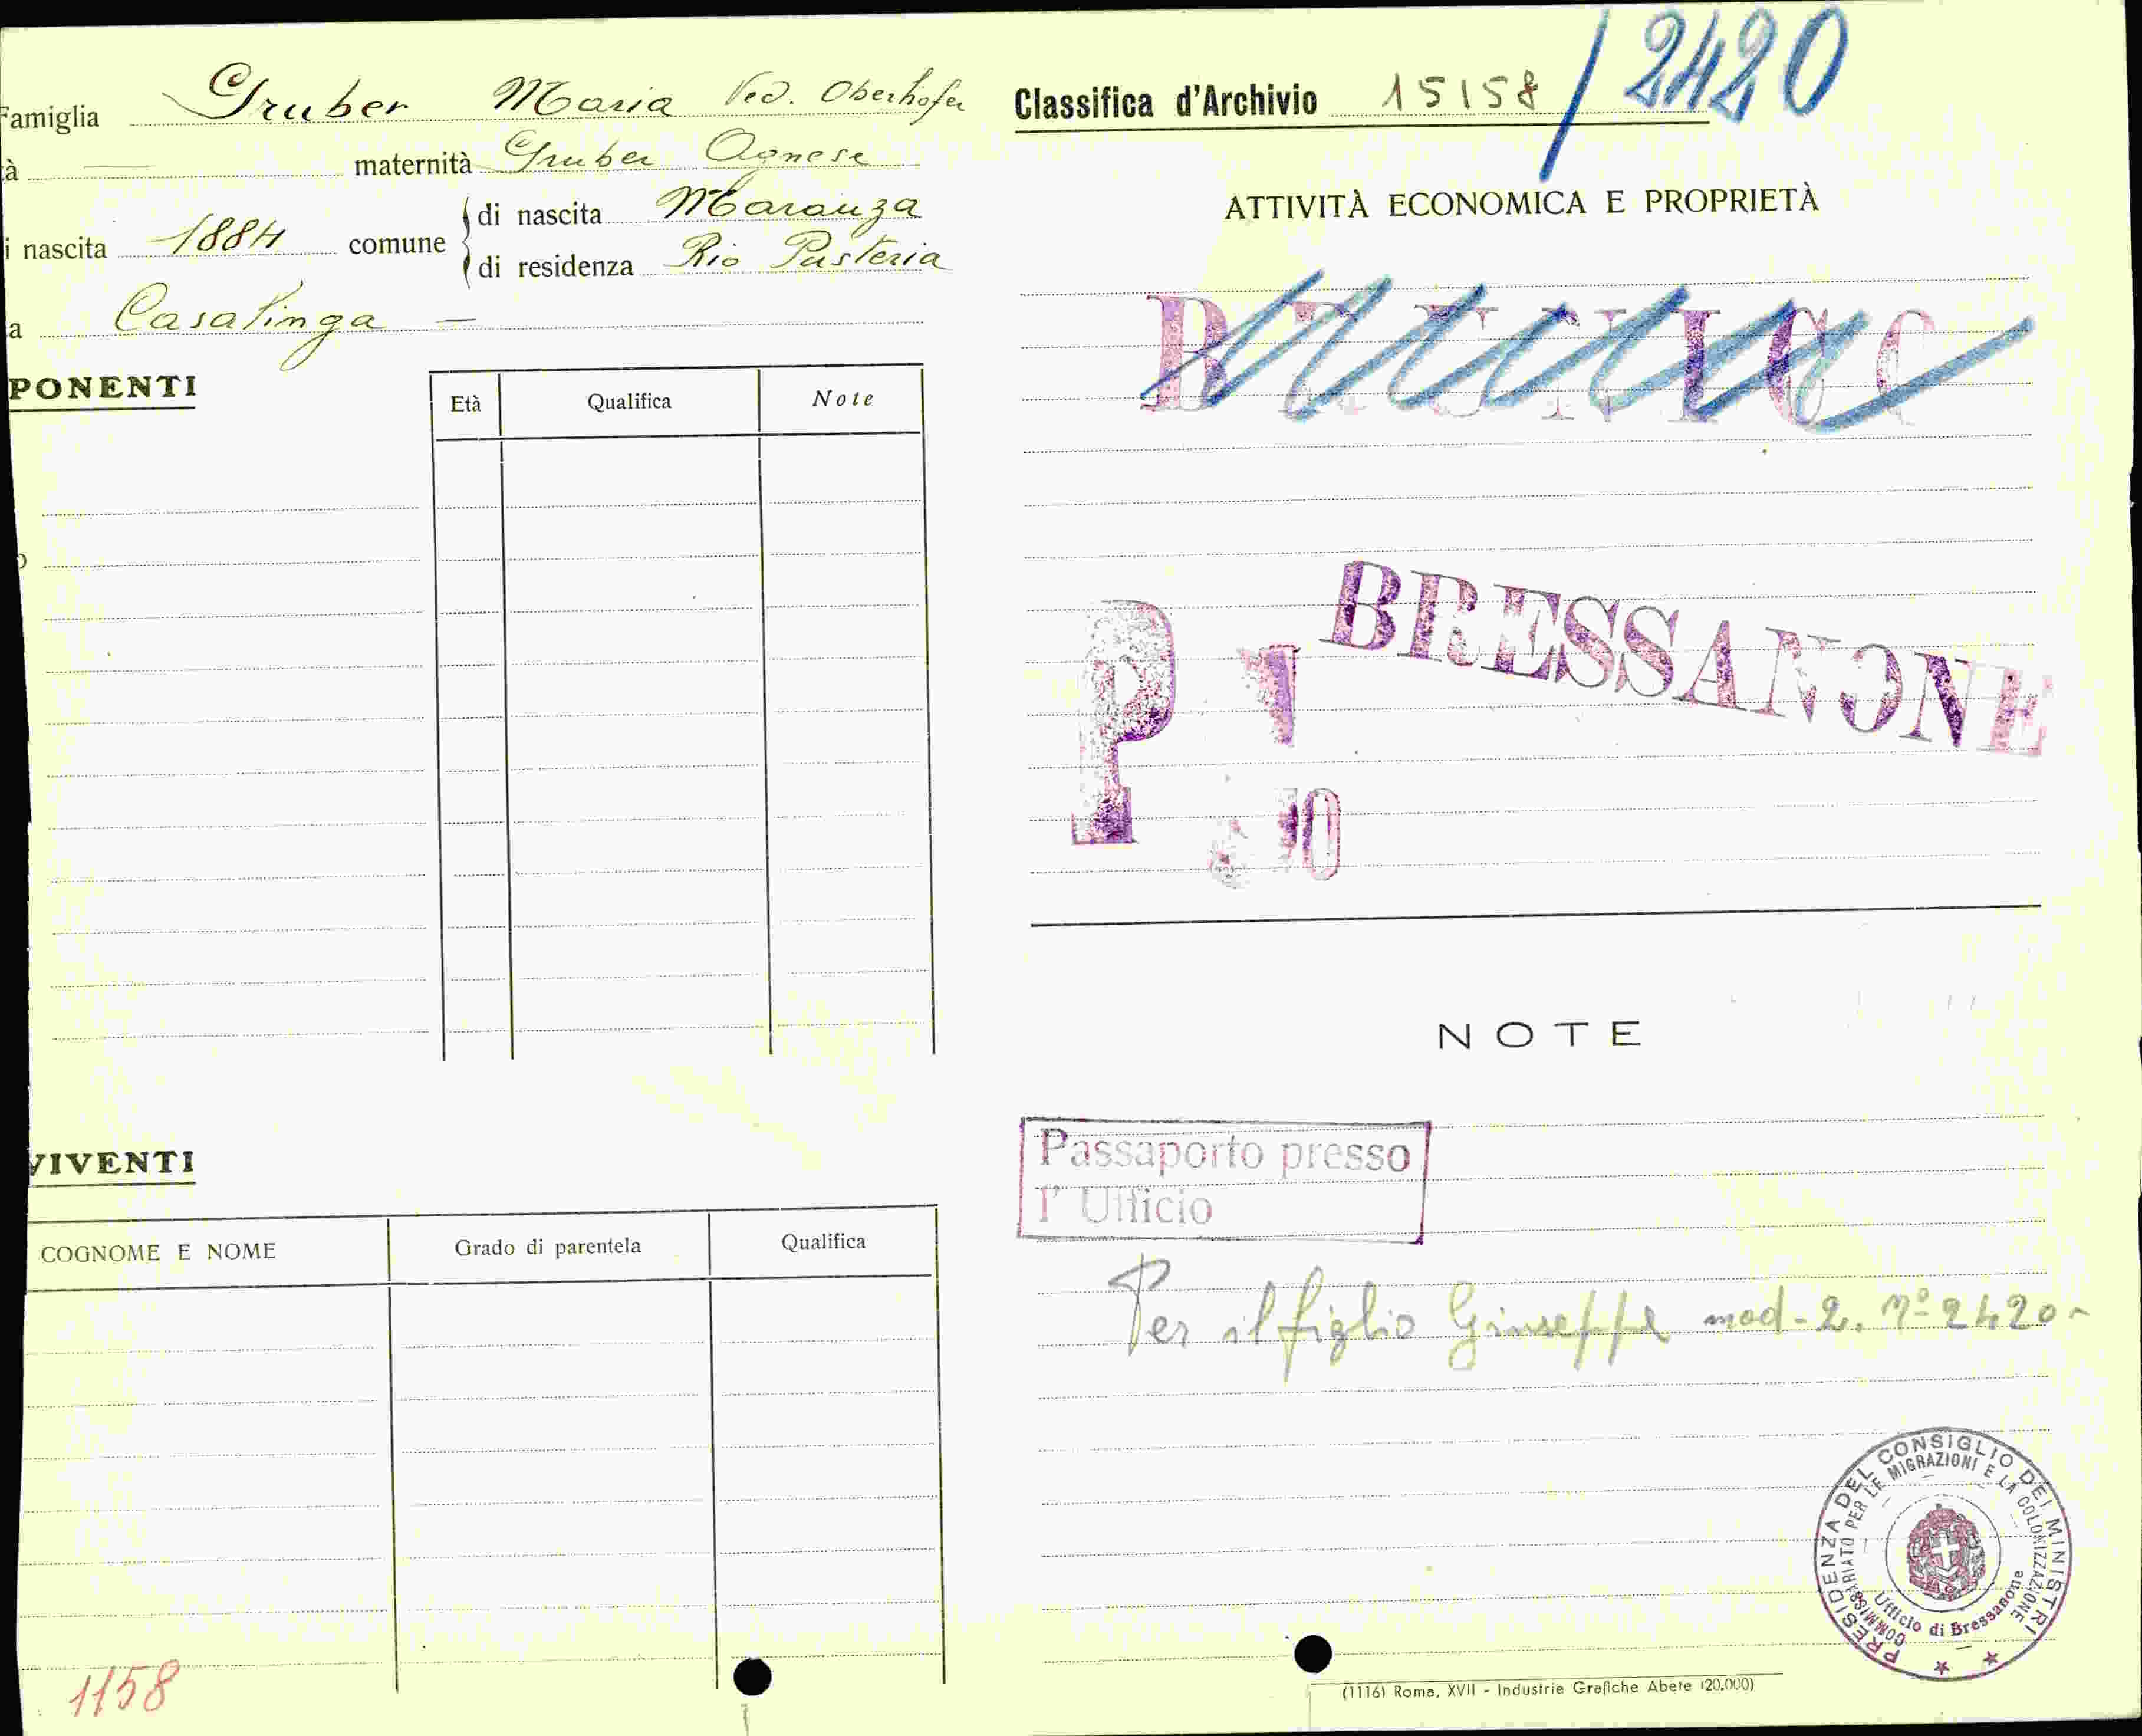 Famiglia Gruber Maria Ved. Oberhofer
tà — maternità Gruber Agnese
i nascita 1884 comune di nascita Maranza
di residenza Rio Pusteria
a Casalinga —
PONENTI
Età Qualifica Note
o
VIVENTI
COGNOME E NOME Grado di parentela Qualifica
1158
Classifica d'Archivio 15158 / 2420
ATTIVITÀ ECONOMICA E PROPRIETÀ
BRUNICO
BRESSANONE
P.
NOTE
Passaporto presso
l' Ufficio
Per il figlio Giuseppe mod-2. Nº 2420-
PRESIDENZA DEL CONSIGLIO DEI MINISTRI
COMMISSARIATO PER LE MIGRAZIONI E LA COLONIZZAZIONE
Ufficio di Bressanone
(1116) Roma, XVII - Industrie Grafiche Abete (20.000)